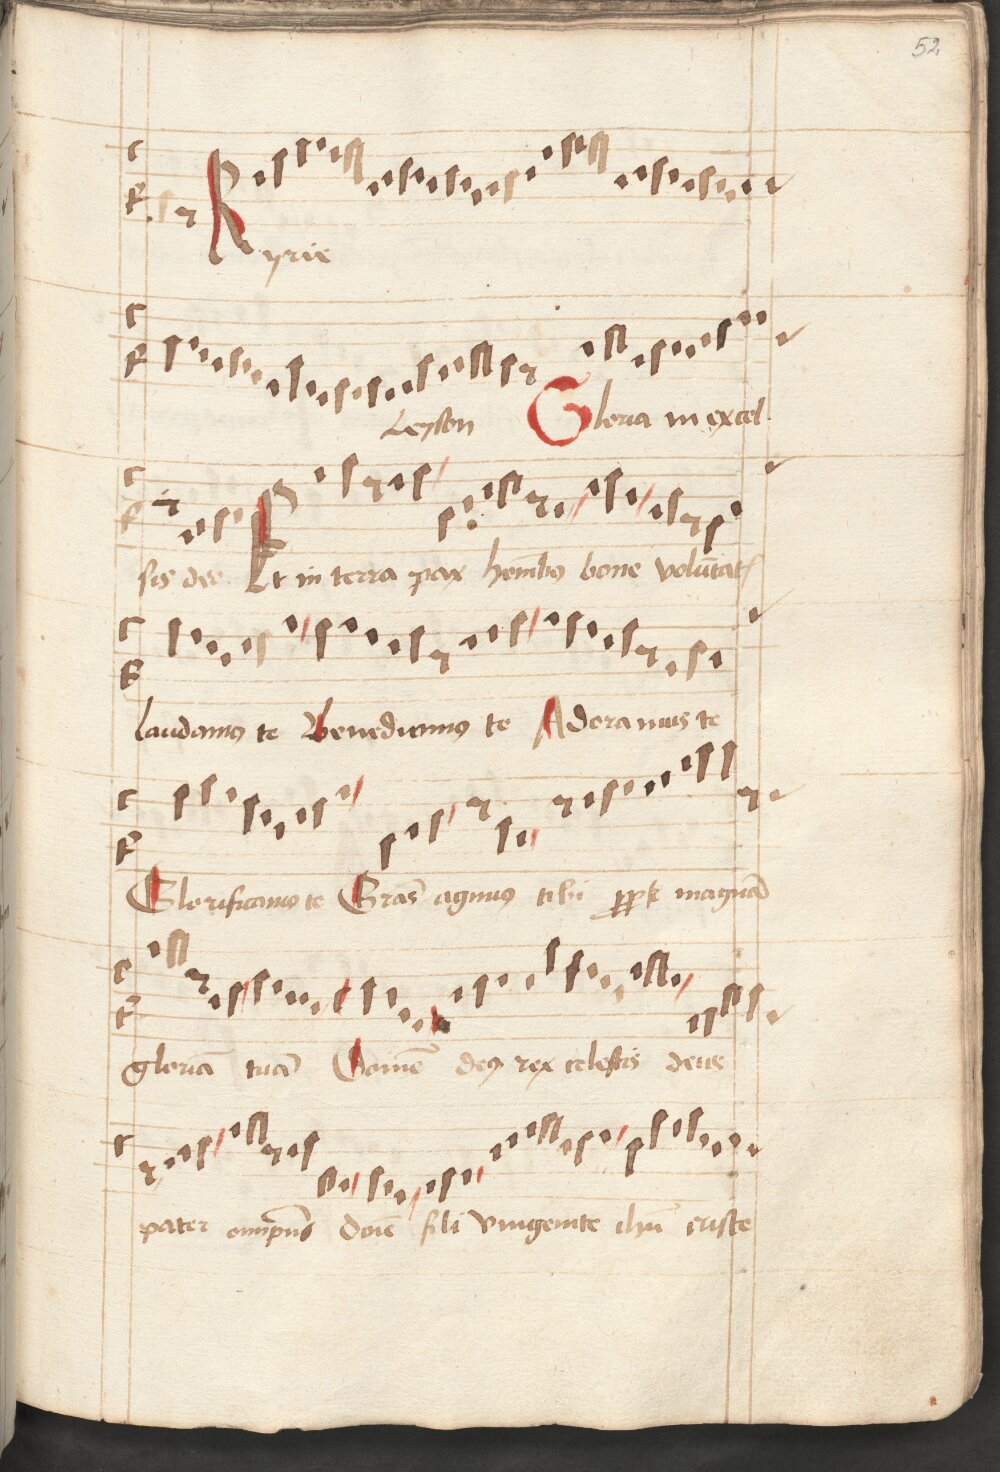 52
Kyrie
Leyson Gloria in excel
sis deo Et in terra pax homībꝰ bone volūtatꝭ
laudamꝰ te Benedicimꝰ te Adoramus te
Glorificamꝰ te Gras agimꝰ tibi ꝓpt magnā
gloriā tuā Domīe deꝰ rex celestis deus
pater omīpns̄ Doīe fili vnigenite ihū criste